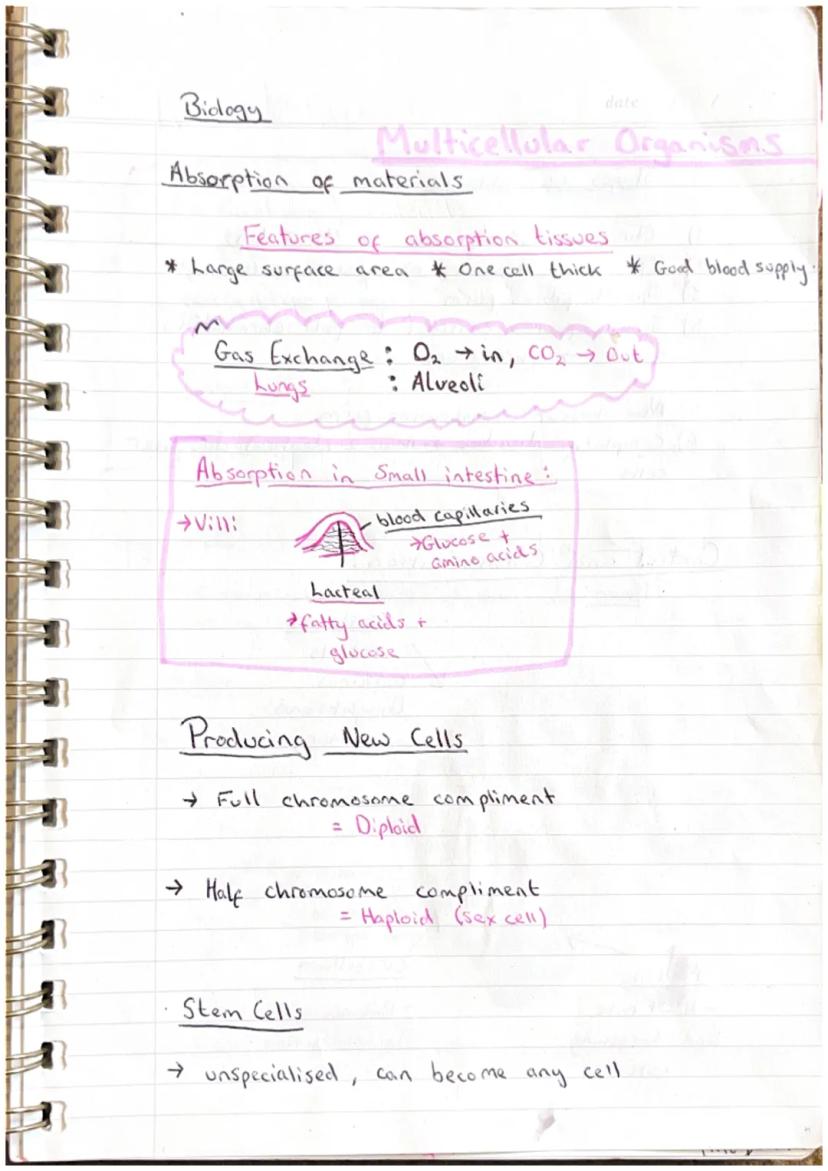 Biology
date
Multicellular Organisms
Absorption of materials
Features of absorption tissues
* Large surface area * One cell thick * Good blood supply.
Gas Exchange : O₂ → in, CO₂ → Out
Lungs : Alveoli
Absorption in Small intestine :
→ Villi
blood capillaries
→ Glucose +
amino acids
Lacteal
→ fatty acids +
glucose
Producing New Cells
→ Full chromosome compliment
= Diploid
→ Half chromosome compliment
= Haploid (sex cell)
Stem Cells
→ unspecialised, can become any cell